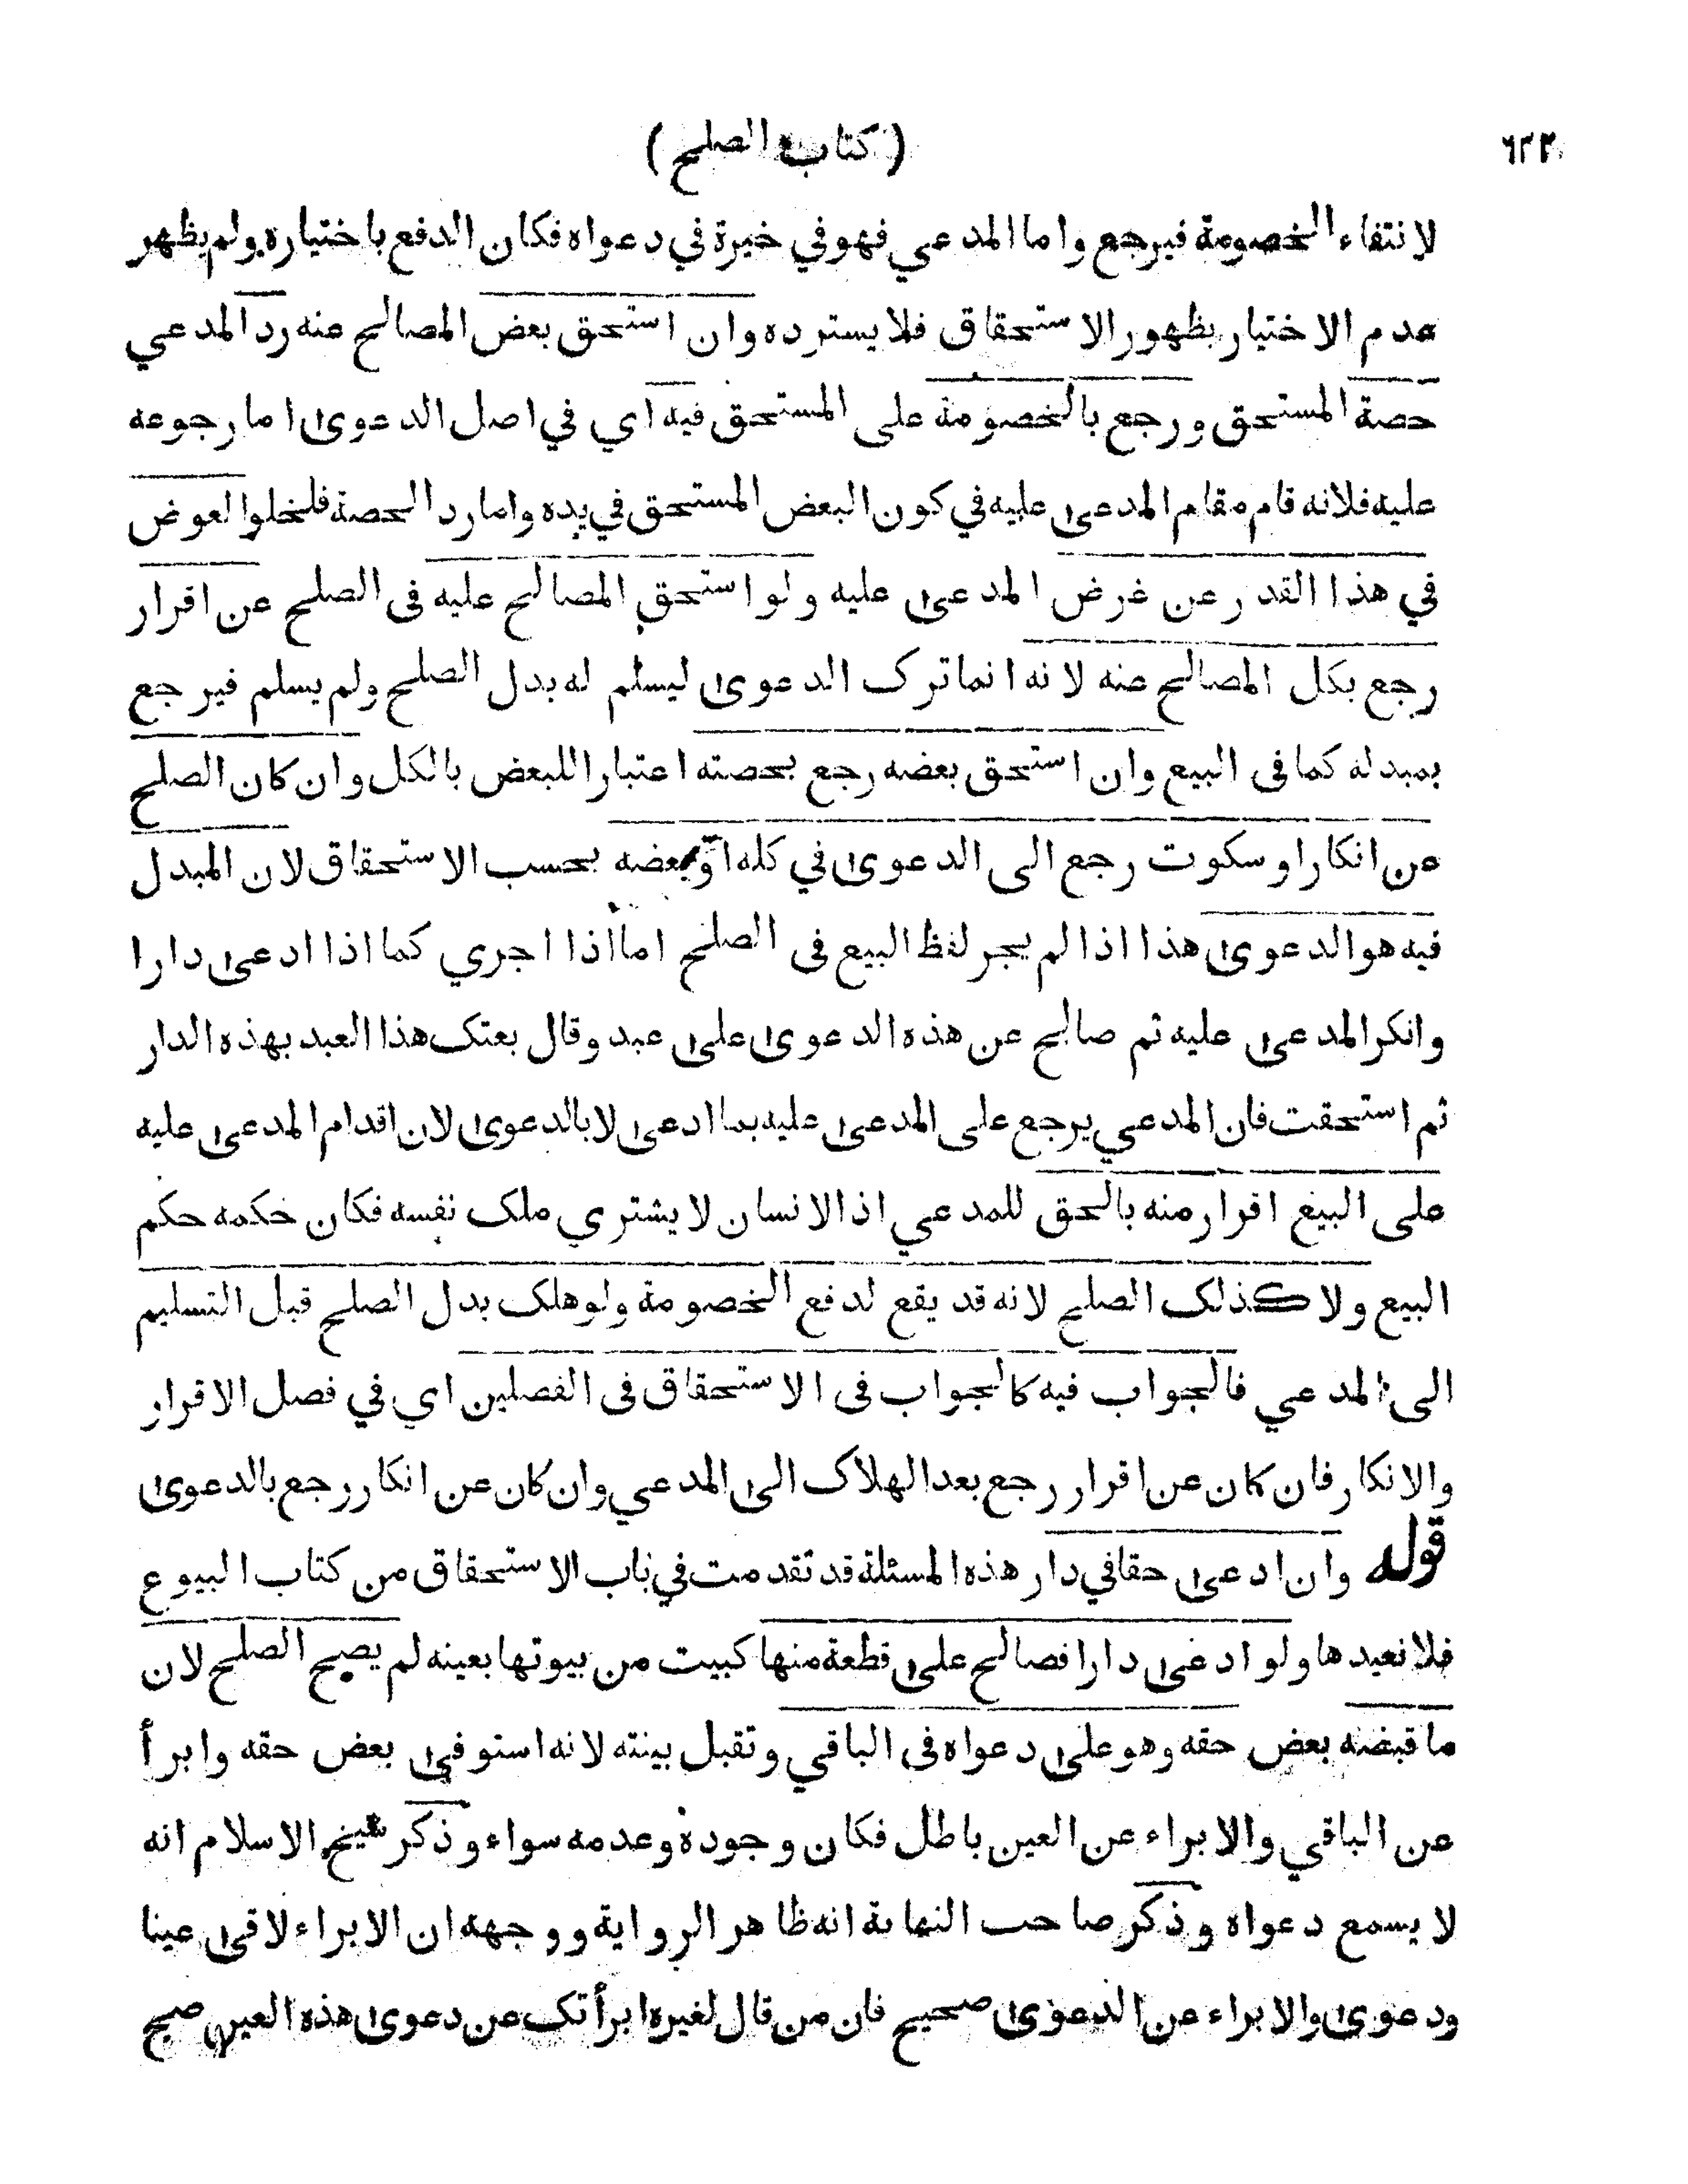 ٦٢٢
( كتاب الصلح )
لانتفاء الخصومة فيرجع واما المدعي فهو في خيرة في دعواه فكان الدفع باختياره ولم يظهر
عدم الاختيار بظهور الاستحقاق فلا يسترده وان استحق بعض المصالح عنه رد المدعي
حصة المستحق ورجع بالخصومة على المستحق فيه اي في اصل الدعوى اما رجوعه
عليه فلانه قام مقام المدعى عليه في كون البعض المستحق في يده واما رد الحصة فلخلو العوض
في هذا القدر عن غرض المدعى عليه ولو استحق المصالح عليه فى الصلح عن اقرار
رجع بكل المصالح عنه لانه انما ترك الدعوى ليسلم له بدل الصلح ولم يسلم فيرجع
بمبدله كما فى البيع وان استحق بعضه رجع بحصته اعتبارا للبعض بالكل وان كان الصلح
عن انكار او سكوت رجع الى الدعوى في كله او بعضه بحسب الاستحقاق لان المبدل
فيه هو الدعوى هذا اذا لم يجر لفظ البيع فى الصلح اما اذا اجري كما اذا ادعى دارا
وانكر المدعى عليه ثم صالح عن هذه الدعوى على عبد وقال بعتك هذا العبد بهذه الدار
ثم استحقت فان المدعي يرجع على المدعى عليه بما ادعى لا بالدعوى لان اقدام المدعى عليه
على البيع اقرار منه بالحق للمدعي اذ الانسان لا يشتري ملك نفسه فكان حكمه حكم
البيع ولا كذلك الصلح لانه قد يقع لدفع الخصومة ولو هلك بدل الصلح قبل التسليم
الى المدعي فالجواب فيه كالجواب فى الاستحقاق فى الفصلين اي في فصل الاقرار
والانكار فان كان عن اقرار رجع بعد الهلاك الى المدعي وان كان عن انكار رجع بالدعوى
قوله وان ادعى حقا في دار هذه المسئلة قد تقدمت في باب الاستحقاق من كتاب البيوع
فلا نعيدها ولو ادعى دارا فصالح على قطعة منها كبيت من بيوتها بعينه لم يصح الصلح لان
ما قبضه بعض حقه وهو على دعواه فى الباقي وتقبل بينته لانه استوفى بعض حقه وابرأ
عن الباقي والابراء عن العين باطل فكان وجوده وعدمه سواء وذكر شيخ الاسلام انه
لا يسمع دعواه وذكر صاحب النهاية انه ظاهر الرواية ووجهه ان الابراء لاقى عينا
ودعوى والابراء عن الدعوى صحيح فان من قال لغيره ابرأتك عن دعوى هذه العين صح